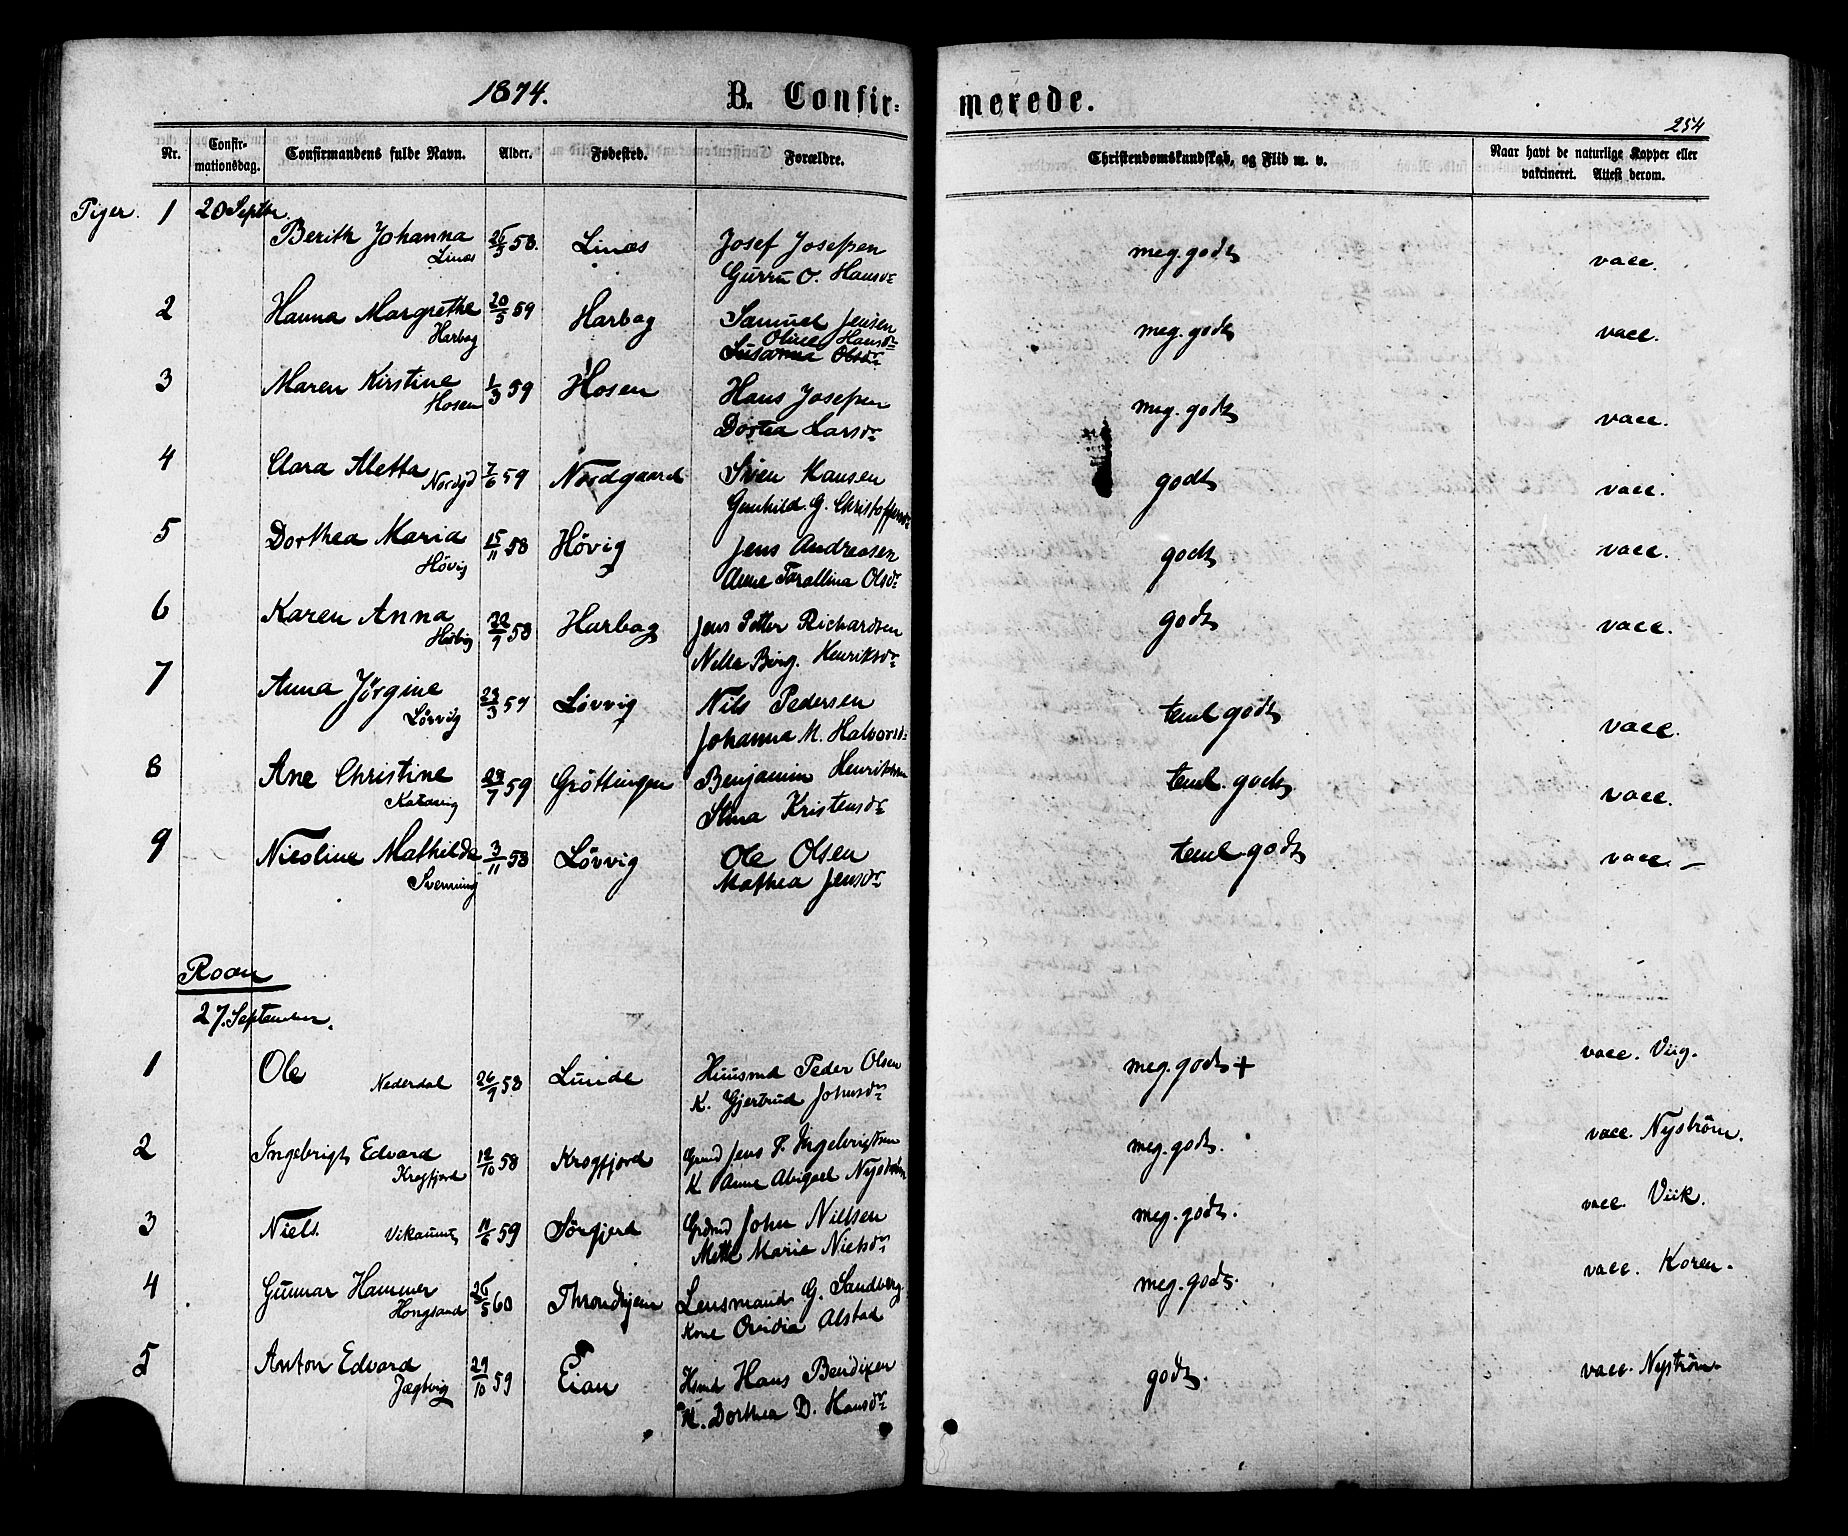 1874. B. Confirmerede. 254
Nr. Confirmationsdag. Confirmandens fulde Navn. Alder. Fødested. Forældre. Christendomskundskab, og Flid m. v. Naar havt de naturlige Kopper eller vakcineret. Attest derom.
Piger. 1 20 Septbr.
Berith Johanna 26/3 58. Linæs Josef Josefsen meg. godt vacc.
Linæs Gurru O. Hansdr
2 Hanna Margrethe 20/5 59 Harbag Samuel Jensen meg. godt vacc.
Harbag Oline Hansdr
Susanna Olsdr
3 Maren Kirstine 1/3 59 Hosen Hans Josefsen meg. godt vacc.
Hosen Dortea Larsdr
4 Clara Aletta 7/6 59 Nordgaard Sven Hansen godt vacc.
Nordgd Gunhild G. Christoffersdr
5 Dorthea Maria 15/11 58 Høvig Jens Andreasen godt vacc.
Høvig Anne Tarallina Olsdr
6 Karen Anna 58 Harbag Jens Petter Richardsen godt vacc.
Nella Birg. Henriksdr
7 Anna Jørgine 23/3 57 Løvvig Nils Pedersen teml. godt vacc.
Løvvig Johanna M. Halvorsdr
8 Ane Christine 29/7 59 Grøttingen Benjamin Henriksen teml. godt vacc.
Stina Kristensdr
9 Nicoline Mathilde 3/11 58 Løvvig Ole Olsen teml. godt vacc. –
Svenning Mathea Jensdr
Roan
27. September.
1 Ole Nederdal 26/9 58 Lunde Huusmd Peder Olsen meg. godt + vacc. Viig.
K. Gjertrud Johnsdr
2 Ingebrigt Edvard 12/10 58 Krogfjord Grmd Jens P. Ingebrigtsen meg. godt. vacc. Nyström.
Krogfjord K Anne Abigael Nyström
3 Niels. Vikaunet 11/6 59 Sørgjerd Grdmd John Nielsen meg. godt. vacc. Viik.
Mette Marie Nielsdr
4 Gunnar Hammer 26/5 60 Throndhjem Lensmand G. Sandberg meg. godt. vacc. Koren.
Hongsand Kone Ovidia Alstad
5 Anton Edvard 29/10 59 Eian Hsmd Hans Bendixen godt. vacc. Nyström.
Jægtvig K. Dorthea D. Hansdr